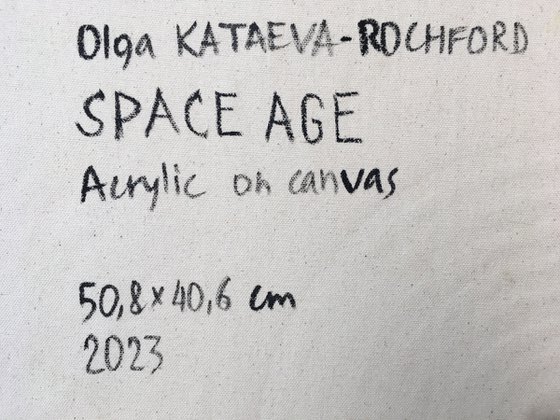 Olga KATAEVA-ROCHFORD
SPACE AGE
Acrylic on canvas
50,8 x 40,6 cm
2023